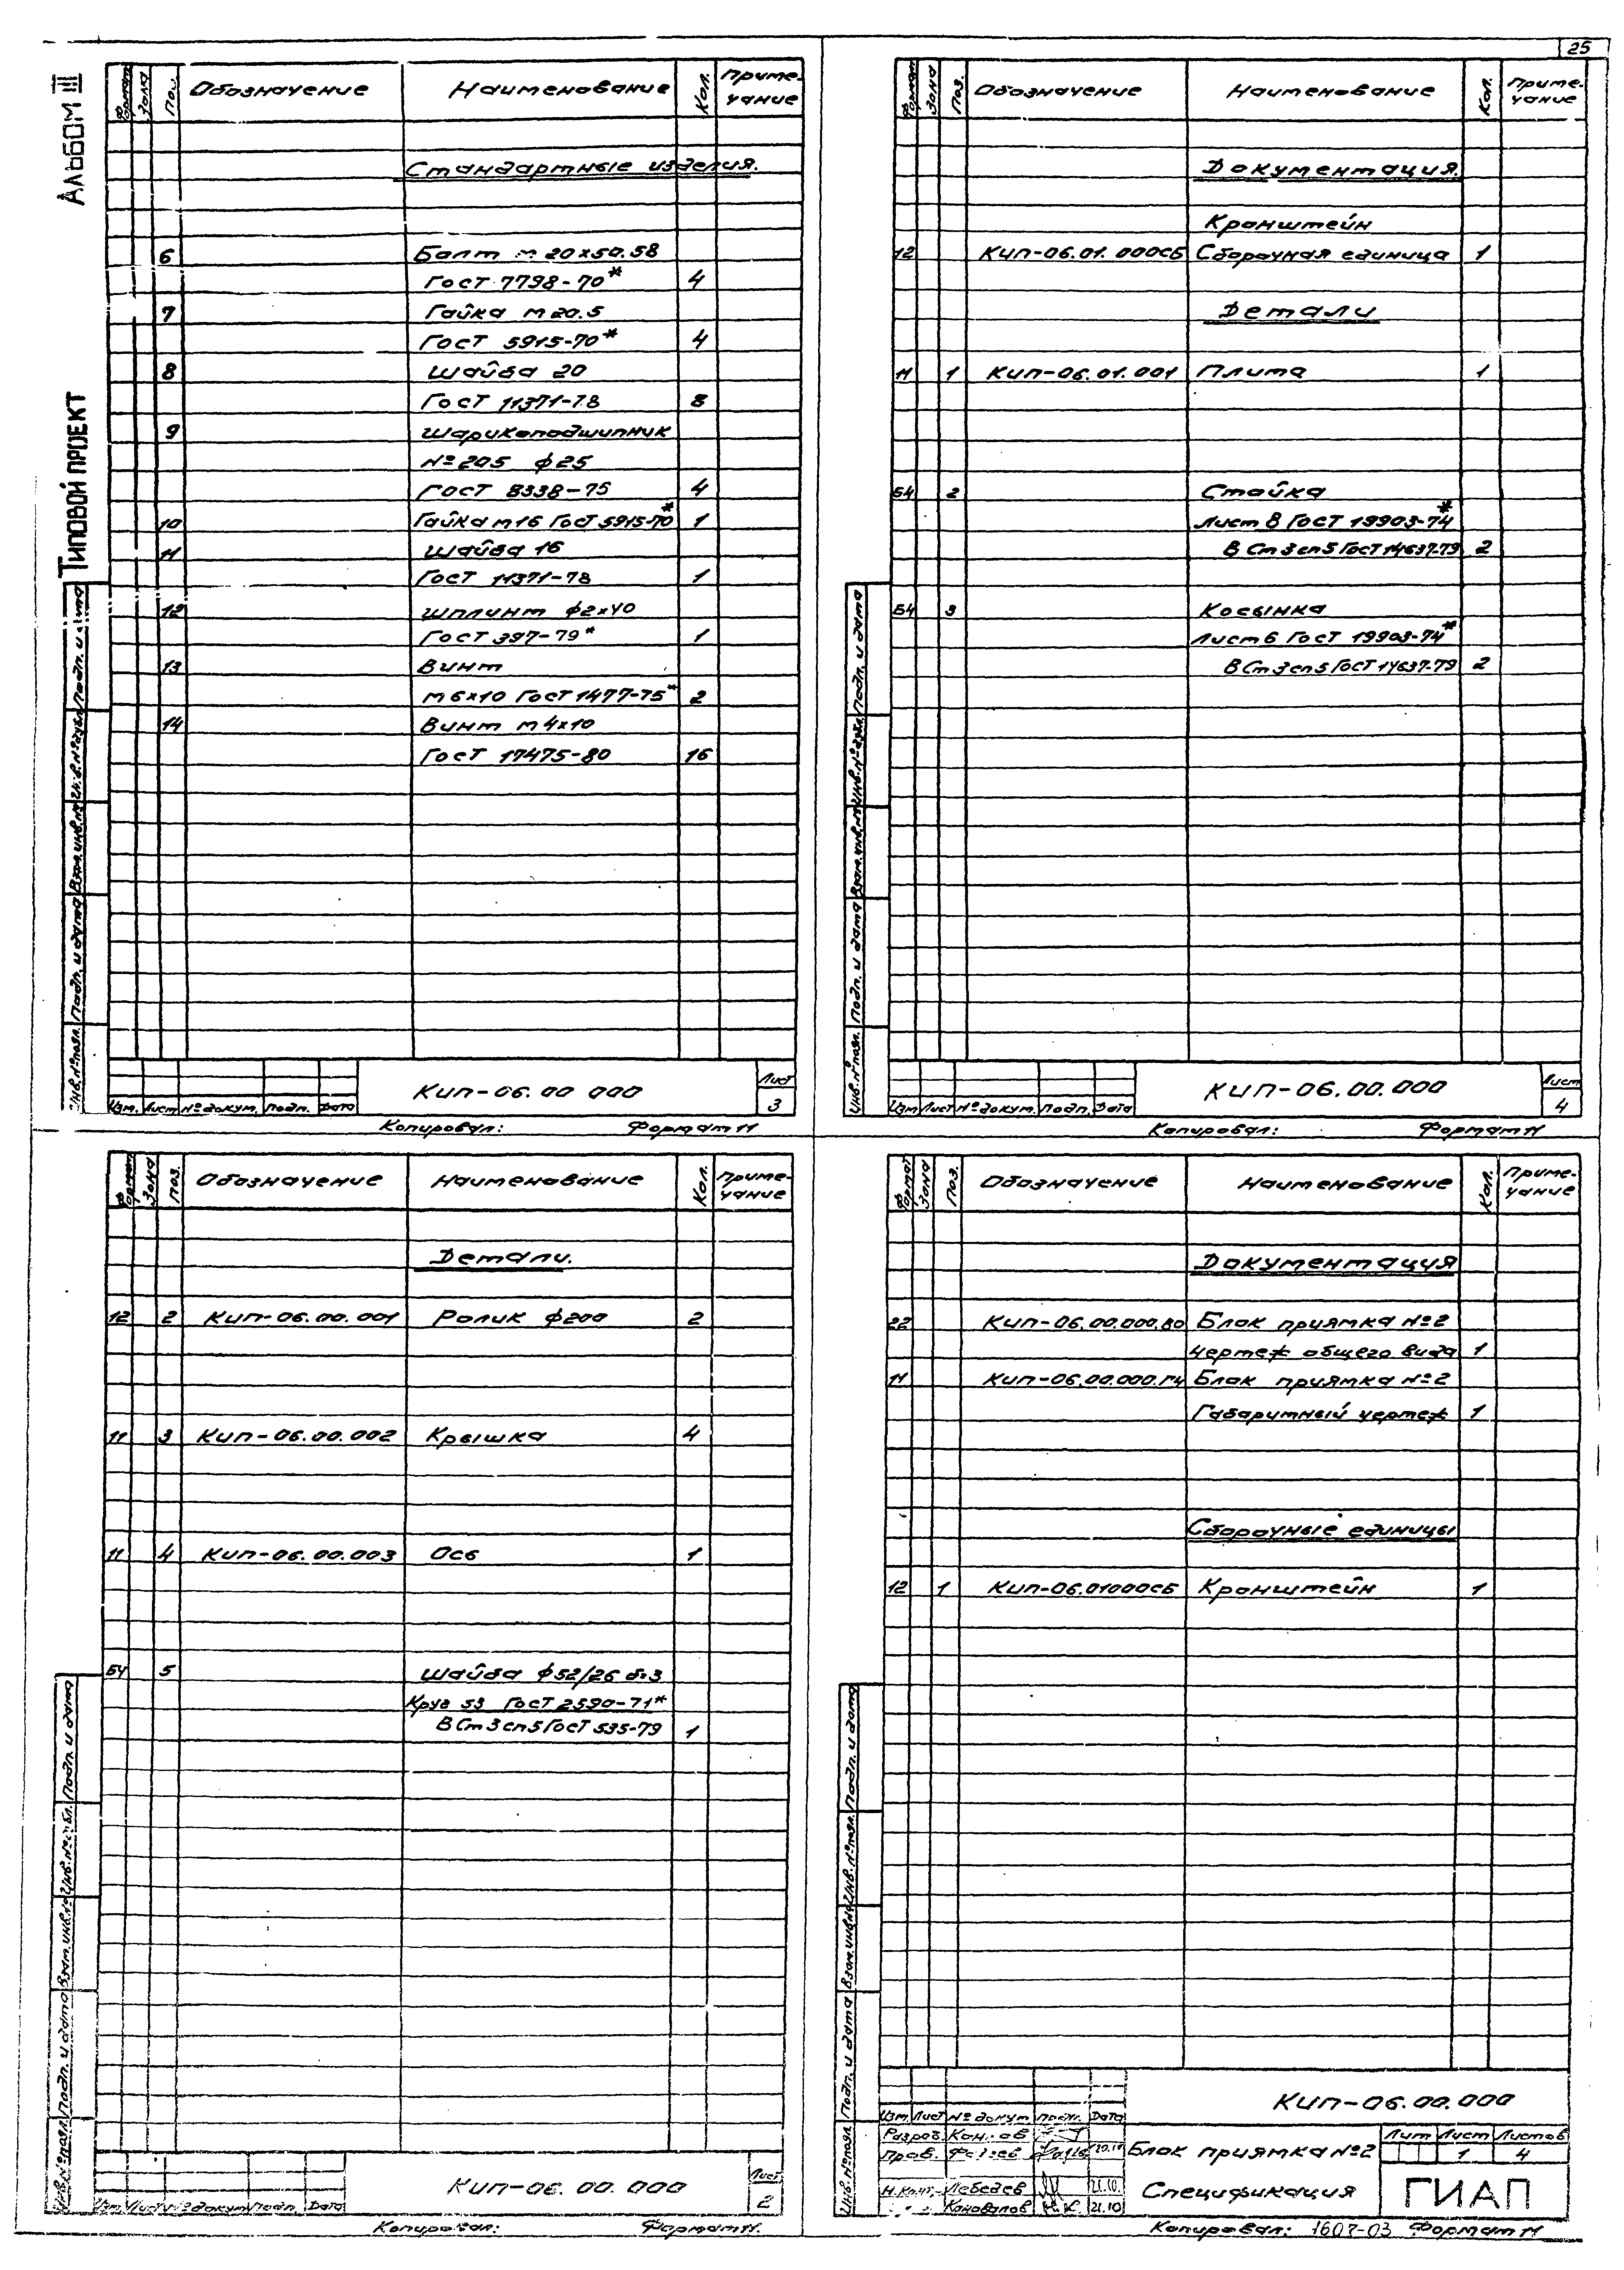 25
Альбом III
Типовой проект
Формат Зона Поз. Обозначение Наименование Кол. Приме-
чание
Стандартные изделия.
6 Болт м 20×50.58
Гост 7798-70* 4
7 Гайка м 20.5
Гост 5915-70* 4
8 Шайба 20
Гост 11371-78 8
9 Шарикоподшипник
№205 ф25
Гост 8338-75 4
10 Гайка м16 Гост 5915-70* 1
11 Шайба 16
Гост 11371-78 1
12 Шплинт ф2×40
Гост 397-79* 1
13 Винт
м6×10 Гост 1477-75* 2
14 Винт м4×10
Гост 17475-80 16
Подп. и дата
Инв.№дубл.
Взам.инв.№
Подп. и дата
Инв.№подл.
Изм. Лист № докум. Подп. Дата
КИП-06.00 000
Лист
3
Копировал: Формат 11
Формат Зона Поз. Обозначение Наименование Кол. Приме-
чание
Документация.
Кронштейн
12 КИП-06.01.000СБ Сборочная единица 1
Детали
11 1 КИП-06.01.001 Плита 1
Б4 2 Стойка
Лист 8 Гост 19903-74*
ВСт3сп5 Гост 14637-79 2
Б4 3 Косынка
Лист 6 Гост 19903-74*
ВСт3сп5 Гост 14637-79 2
Подп. и дата
Инв.№дубл.
Взам.инв.№
Подп. и дата
Инв.№подл.
Изм Лист № докум. Подп. Дата
КИП-06.00.000
Лист
4
Копировал: Формат 11
Формат Зона Поз. Обозначение Наименование Кол. Приме-
чание
Детали.
12 2 КИП-06.00.001 Ролик ф200 2
11 3 КИП-06.00.002 Крышка 4
11 4 КИП-06.00.003 Ось 1
Б4 5 Шайба ф52/26 δ=3
Круг 53 Гост 2590-71*
ВСт3сп5 Гост 535-79 1
Подп. и дата
Инв.№дубл.
Взам.инв.№
Подп. и дата
Инв.№подл.
Изм. Лист № докум Подп. Дата
КИП-06.00.000
Лист
2
Копировал: Формат 11.
Формат Зона Поз. Обозначение Наименование Кол. Приме-
чание
Документация
22 КИП-06.00.000.ВО Блок приямка №2
Чертеж общего вида 1
11 КИП-06.00.000.ГЧ Блок приямка №2
Габаритный чертеж 1
Сборочные единицы
12 1 КИП-06.01000СБ Кронштейн 1
Подп. и дата
Инв.№подл.
Взам.инв.№
Подп. и дата
Инв.№подл
Изм. Лист № докум Подп. Дата
КИП-06.00.000
Разраб.
Пров.
Н.конт. Лебедев 21.10.
Коновалов 21.10
Блок приямка №2
Спецификация
Лит Лист Листов
1 4
ГИАП
Копировал: 1607-03 Формат 11